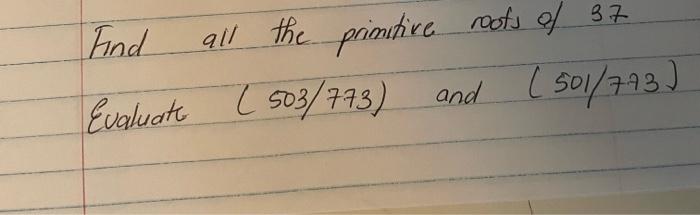 Find all the primitive roots of 37
Evaluate (503/773) and (501/773)